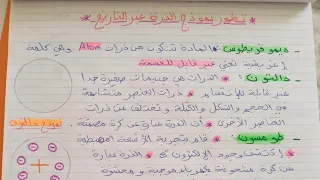 تطور نموذج الذرة عبر التاريخ
ديموقريطوس: المادة تتكون من ذرات Atom وهي كلمة
إغريقية تعني غير قابل للقسمة
دالتون: الذرات هي جسيمات صغيرة جدا
غير قابلة للانقسام * ذرات العنصر متشابهة
من الحجم والشكل والكتلة وتختلف عن ذرات
العناصر الأخرى * أن الذرة عبارة عن كرة مصمتة
نموذج دالتون
طومسون: قام بتجربة الأشعة المهبطية
إكتشف وجود الإلكترون * الذرة عبارة
عن كرة مشحونة بكهرباء موجبة و